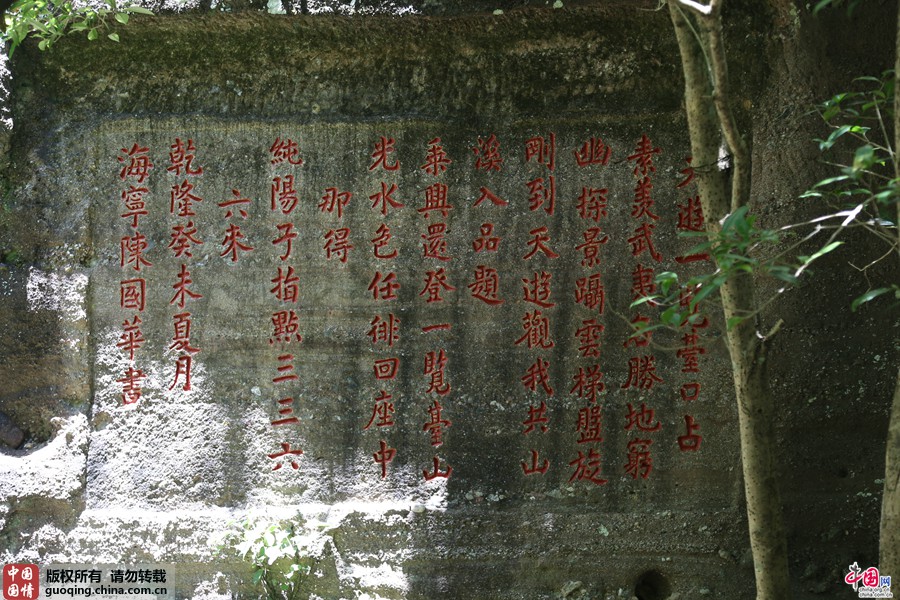 天遊一覽臺口占
素羨武夷名勝地窮
幽探景躡雲梯盤旋
剛到天遊觀我共山
溪入品題
乘興還登一覽臺山
光水色任徘回座中
那得
純陽子指點三三六
六來
乾隆癸未夏月
海寧陳國華書
中国国情
版权所有 请勿转载
guoqing.china.com.cn
中国网
china.org.cn